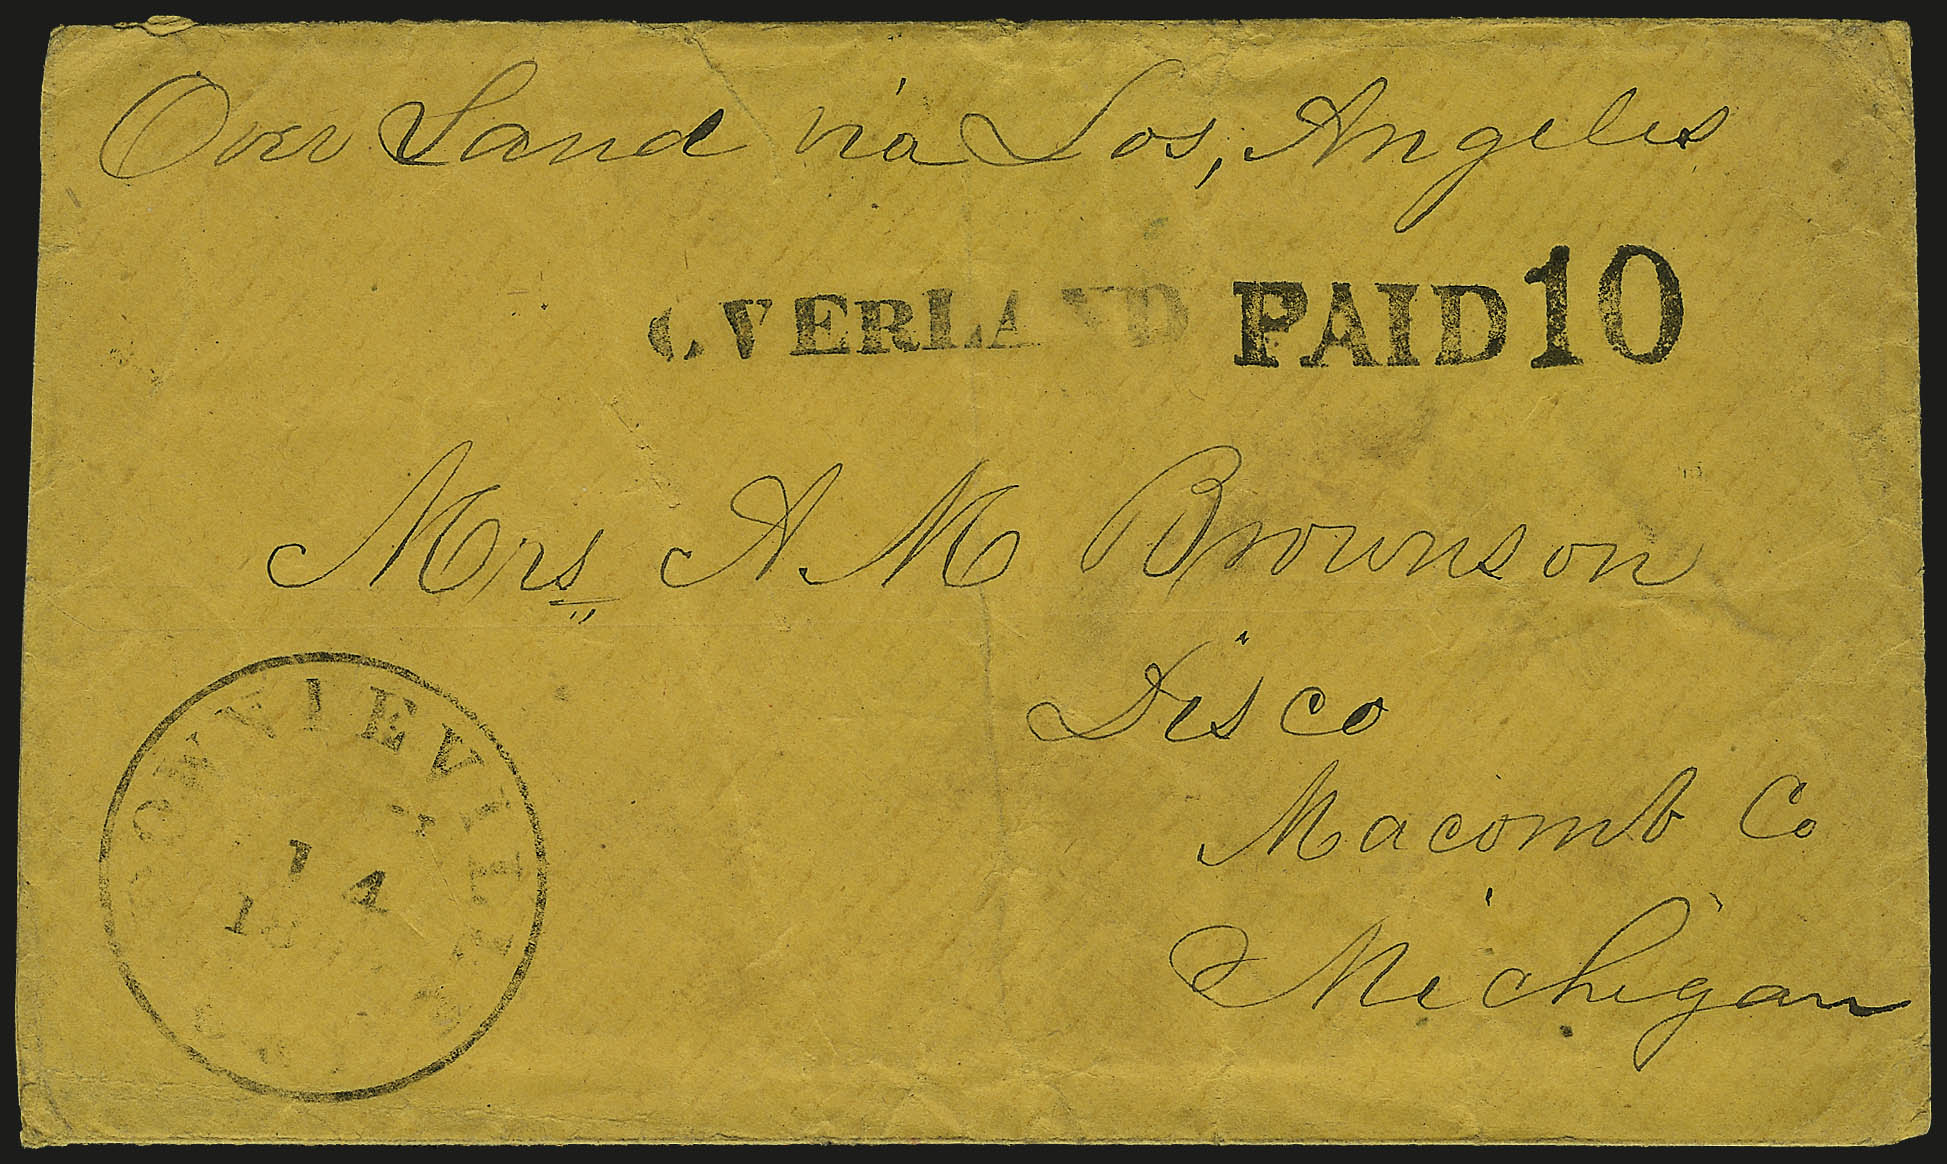 Over Land via Los, Angeles
OVERLAND PAID 10
Mrs A M Brownson
Disco
Macomb Co
Michigan
DOWNIEVILLE
14